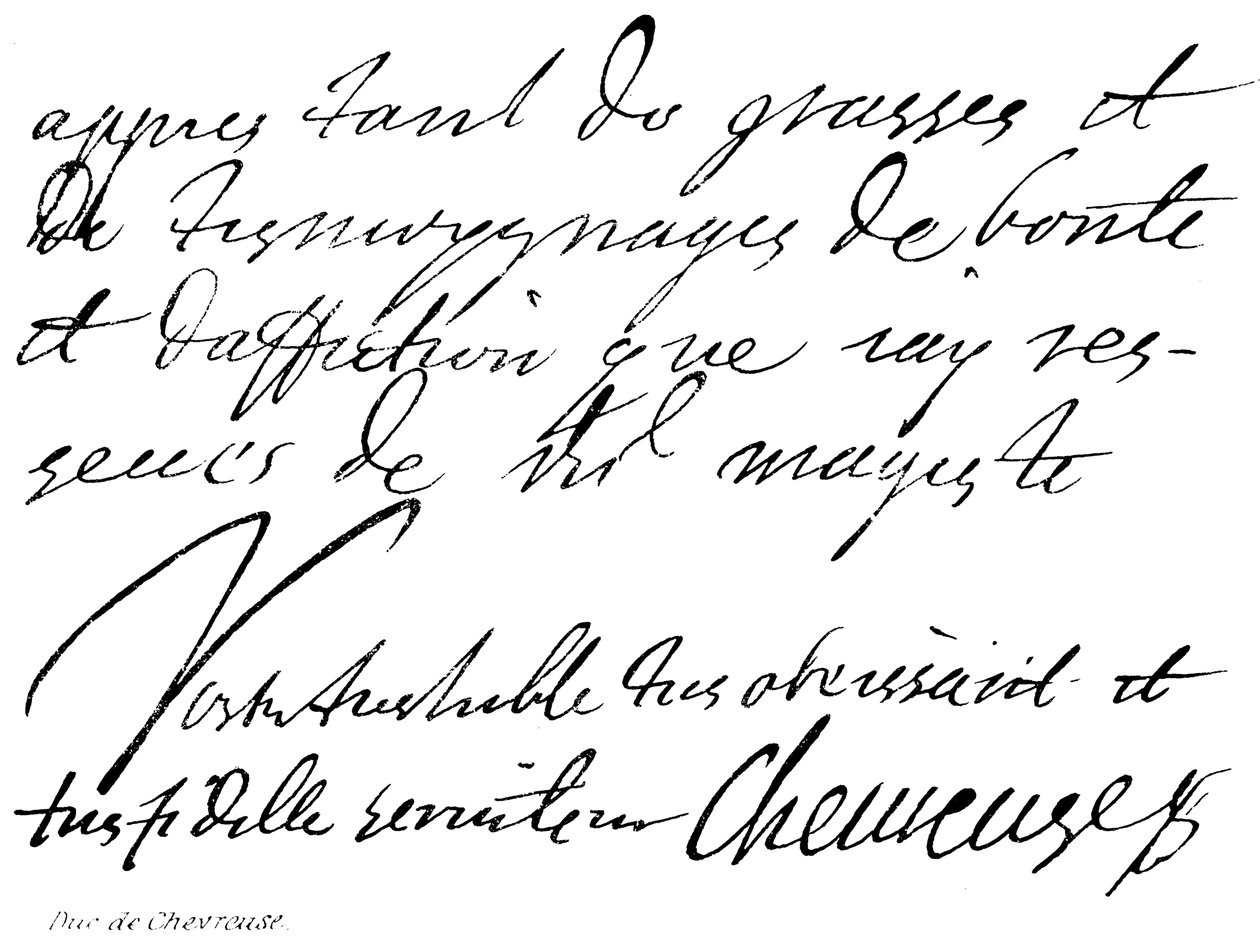 appres tant de grasses et
De tesmoygnages de bonte
et daffection que iay res-
seues de vre mageste
Vostre tres humble tres obeissant et
tres fidelle seruiteur Cheureuse
Duc de Chevreuse.